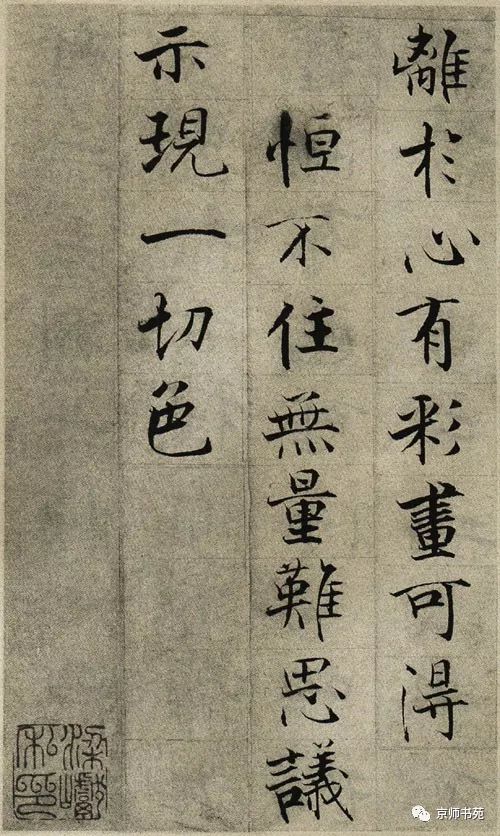 離於心有彩畫可得
恒不住無量難思議
示現一切色
京师书苑